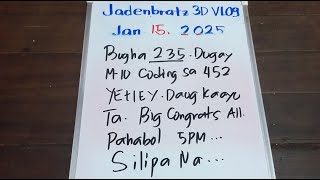 Jadenbratz 3D VLOG
Jan 15, 2025
Bugha 235. Dugay
M-10 Coding sa 452
YETIEY. Daug Kaayu
Ta. Big Congrats All.
Pahabol 5PM...
Silipa Na...